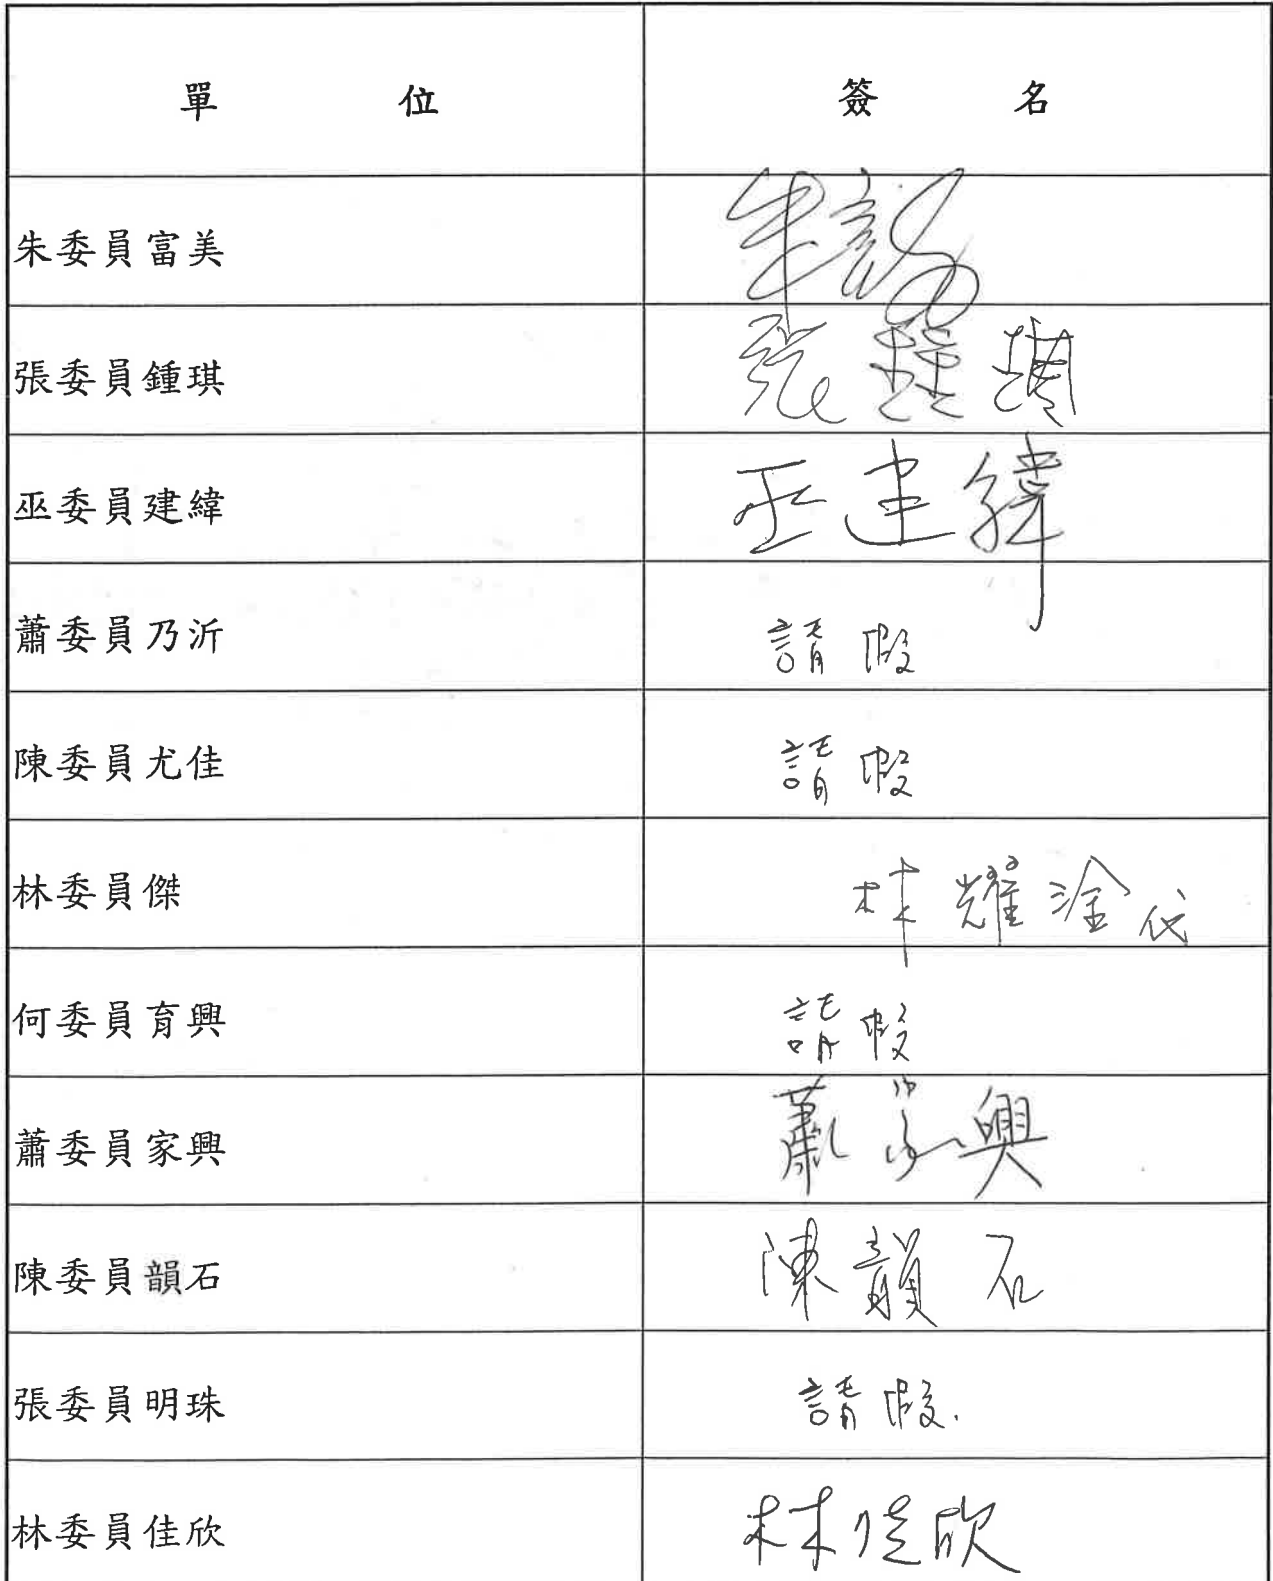 單位 簽名
朱委員富美 朱富美
張委員鍾琪 張鍾琪
巫委員建緯 巫建緯
蕭委員乃沂 請假
陳委員尤佳 請假
林委員傑 林耀淦代
何委員育興 請假
蕭委員家興 蕭家興
陳委員韻石 陳韻石
張委員明珠 請假.
林委員佳欣 林佳欣